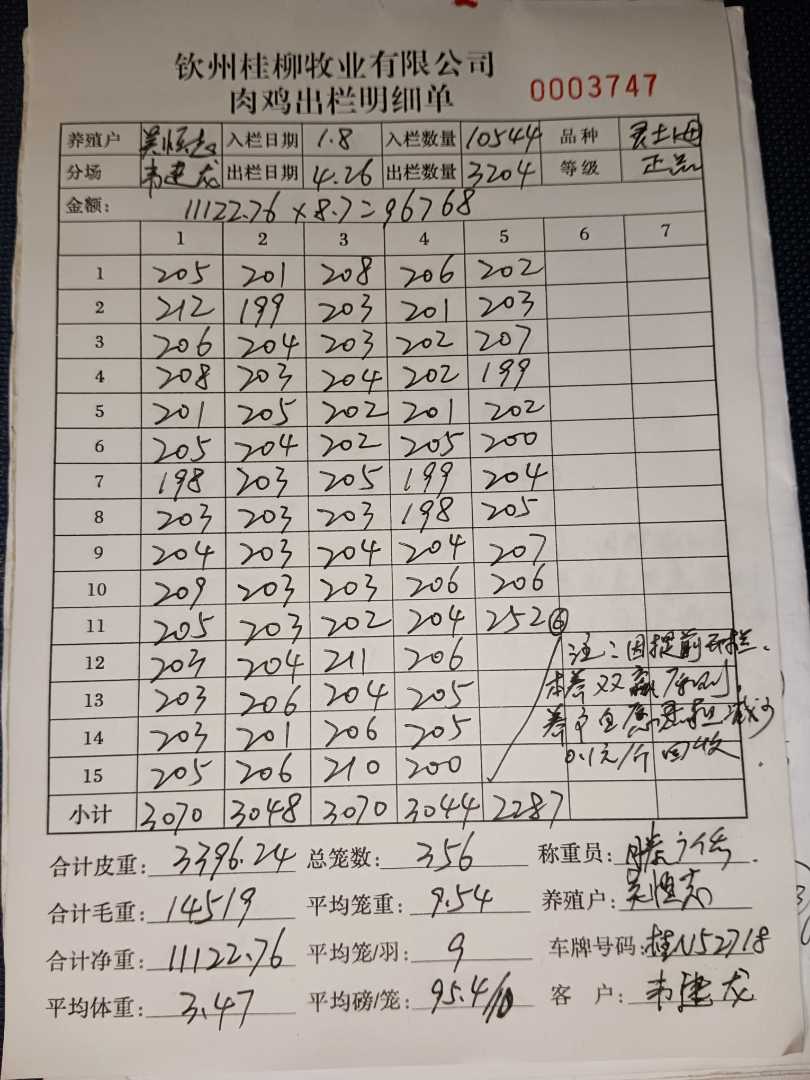 钦州桂柳牧业有限公司
肉鸡出栏明细单 0003747
养殖户 吴恒志 入栏日期 1.8 入栏数量 10544 品种
分场 韦建龙 出栏日期 4.26 出栏数量 3204 等级 正品
金额: 11122.76×8.7=96768
1 2 3 4 5 6 7
1 205 201 208 206 202
2 212 199 203 201 203
3 206 204 203 202 207
4 208 203 204 202 199
5 201 205 202 201 202
6 205 204 202 205 200
7 198 203 205 199 204
8 203 203 203 198 205
9 204 203 204 204 207
10 209 203 203 206 206
11 205 203 202 204 252 ⑥
12 203 204 211 206 注:因提前出栏.
13 203 206 204 205 本着双赢原则,
14 203 201 206 205 养户自愿 减少
15 205 206 210 200 0.1元/斤回收.
小计 3070 3048 3070 3044 2287
合计皮重: 3396.24 总笼数: 356 称重员:
合计毛重: 14519 平均笼重: 9.54 养殖户: 吴恒志
合计净重: 11122.76 平均笼/羽: 9 车牌号码: 桂N52718
平均体重: 3.47 平均磅/笼: 95.4/10 客 户: 韦建龙